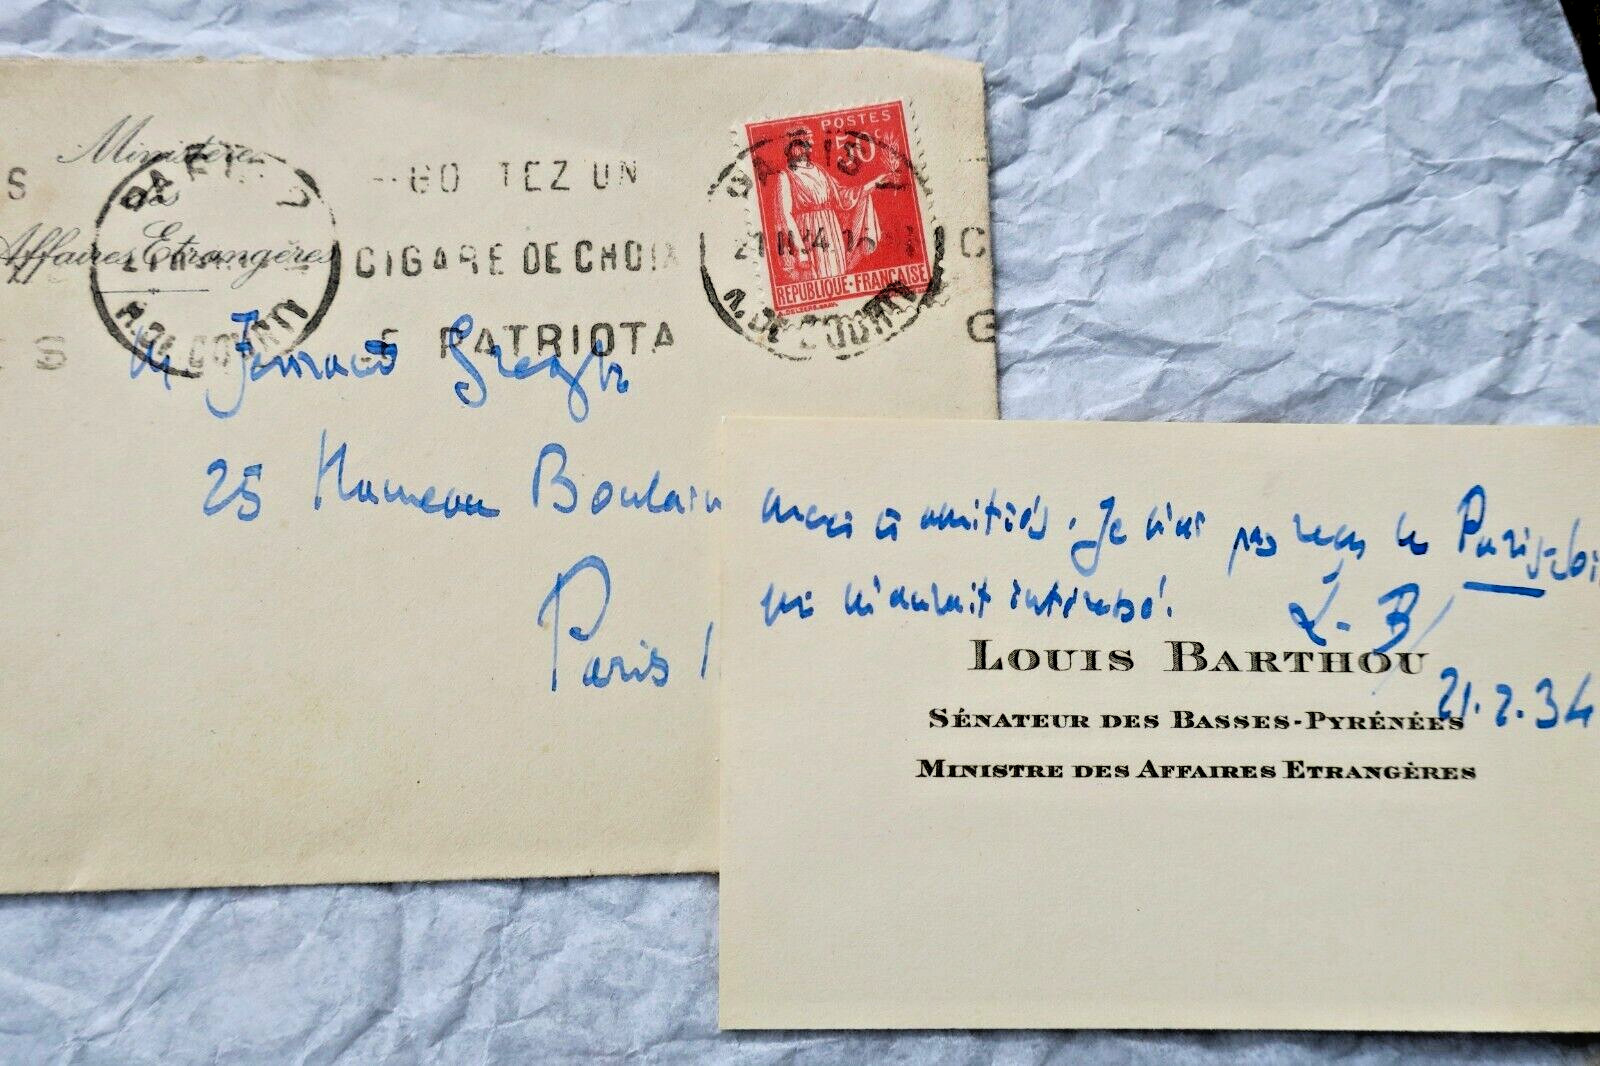 Ministère
des
Affaires Etrangères
PARIS
21 II 34
R. DE GOURMONT
S
GOUTEZ UN
CIGARE DE CHOIX
LE PATRIOTA
ES
C
G
POSTES
50c
REPUBLIQUE-FRANÇAISE
PARIS
21 II 34 16
M Fernand Gregh
25 Hameau Boulain
Paris 1
merci & amitiés. Je n'ai pas reçu le Paris-
qui m'aurait intéressé.
L. B
21.2.34
LOUIS BARTHOU
SÉNATEUR DES BASSES-PYRÉNÉES
MINISTRE DES AFFAIRES ETRANGÈRES